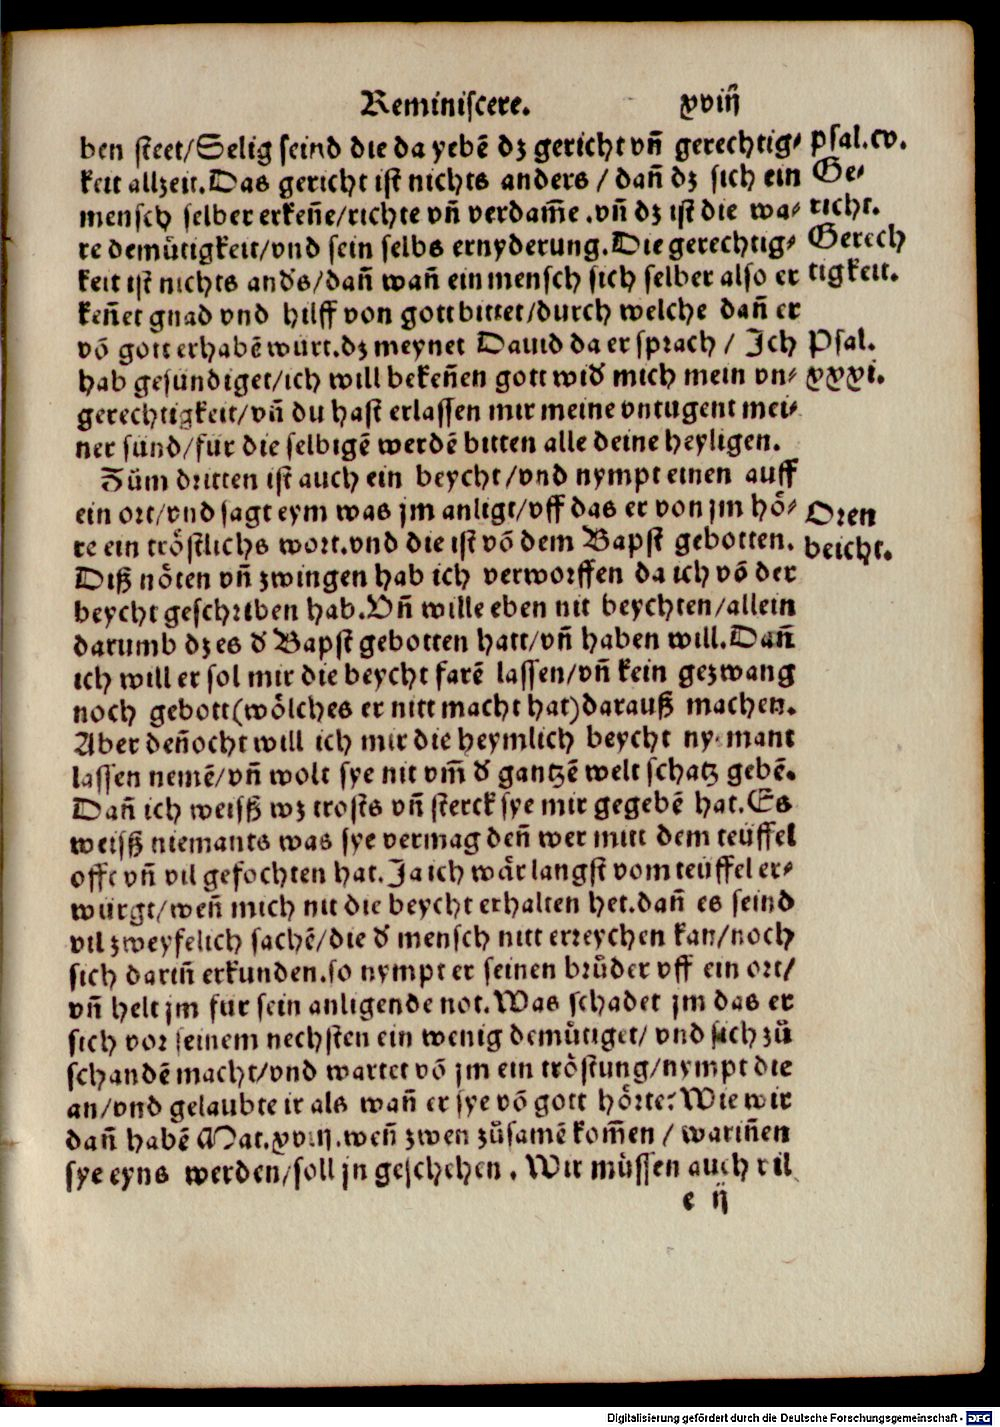 Reminiscere. xviij
ben steet/Selig seind die da yebē dz gericht vñ gerechtig⸗ Psal.cv.
keit allzeit.Das gericht ist nichts anders / dañ dz sich ein Ge⸗
mensch selber erkeñe/richte vñ verdam̃e .vñ dz ist die wa⸗ richt.
re demůtigkeit/vnd sein selbs ernyderung.Die gerechtig⸗ Gerech
keit ist nichts and's/dañ wañ ein mensch sich selber also er tigkeit.
keñet gnad vnd hilff von gott bittet/durch welche dañ er
vō gott erhabē würt.dz meynet Dauid da er sprach / Ich Psal.
hab gesündiget/ich will bekeñen gott wid' mich mein vn⸗ xxxi.
gerechtigkeit/vñ du hast erlassen mir meine vntugent mei⸗
ner sünd/für die selbigē werdē bitten alle deine heyligen.
Zům dritten ist auch ein beycht/vnd nympt einen auff
ein ort/vnd sagt eym was jm anligt/vff das er von jm hö⸗ Oren
re ein tröstlichs wort.vnd die ist vō dem Bapst gebotten. beicht.
Diß nöten vñ zwingen hab ich verworffen da ich vō der
beycht geschriben hab.Vñ wille eben nit beychten/allein
darumb dz es d' Bapst gebotten hatt/vñ haben will.Dañ
ich will er sol mir die beycht farē lassen/vñ kein gezwang
noch gebott(wölches er nitt macht hat)darauß machen.
Aber deñocht will ich mir die heymlich beycht nymant
lassen nemē/vñ wolt sye nit vm̃ d' gantzē welt schatz gebē.
Dañ ich weisß wz trosts vñ sterck sye mir gegebē hat.Es
weisß niemants was sye vermag deñ wer mitt dem teüffel
offt vñ vil gefochten hat.Ja ich wär langst vom teüffel er⸗
würgt/weñ mich nit die beycht erhalten het.dañ es seind
vil zweyfelich sachē/die d' mensch nitt erreychen kan/noch
sich dariñ erkunden.so nympt er seinen brůder vff ein ort/
vñ helt jm für sein anligende not.Was schadet jm das er
sich vor seinem nechsten ein wenig demůtiget/ vnd sich zů
schandē macht/vnd wartet vō jm ein tröstung/nympt die
an/vnd gelaubte ir als wañ er sye vō gott hörte:Wie wir
dañ habē Mat.xviij.weñ zwen zůsamē kom̃en / wariñen
sye eyns werden/soll jn geschehen . Wir müssen auch vil
e ij
Digitalisierung gefördert durch die Deutsche Forschungsgemeinschaft - DFG